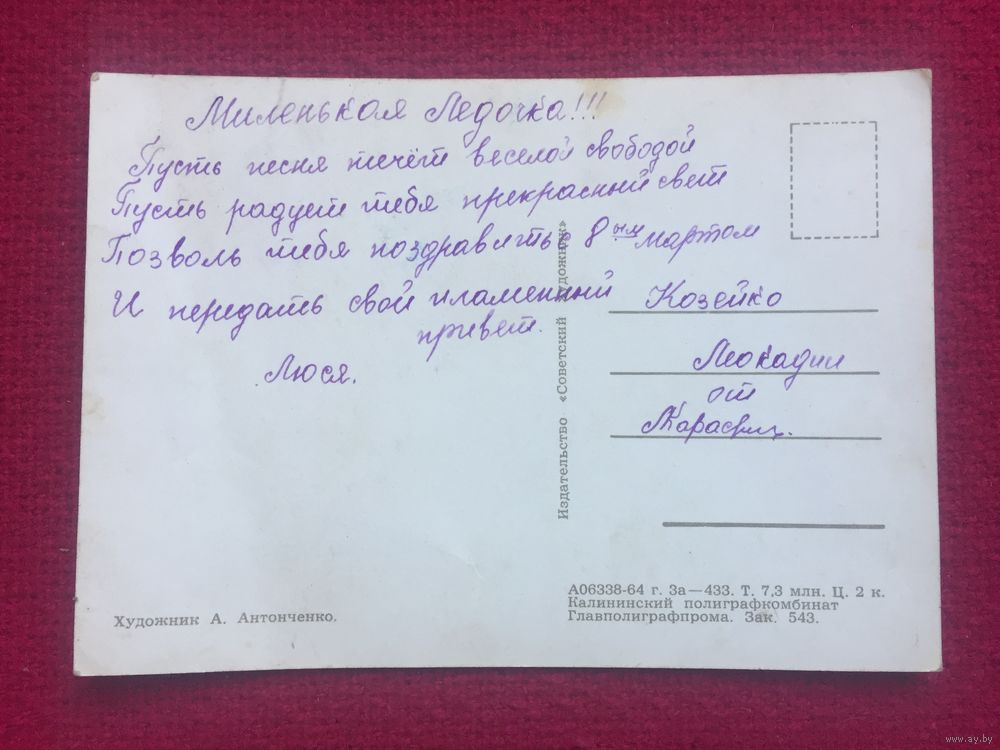 Миленькая Ледочка!!!
Пусть песня течёт веселой свободой
Пусть радует тебя прекрасный свет
Позволь тебя поздравить с 8ым мартом
И передать свой пламенный
привет.
Люся.
Издательство «Советский художник»
Козейко
Леокадии
от
Художник А. Антонченко.
А06338-64 г. За—433. Т. 7,3 млн. Ц. 2 к.
Калининский полиграфкомбинат
Главполиграфпрома. Зак. 543.
www.ay.by